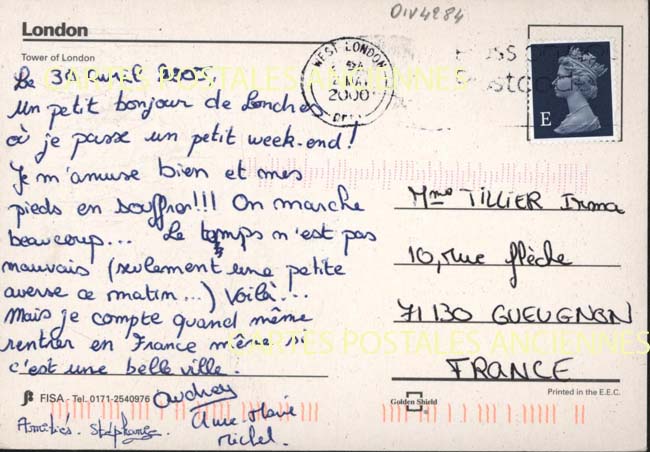 DIV4284
London
Tower of London
Le 30 avril 2000,
Un petit bonjour de Londres
où je passe un petit week-end!
Je m'amuse bien et mes
pieds en souffrer!!! On marche
beaucoup... Le temps n'est pas
mauvais (seulement une petite
averse ce matin...) Voilà...
Mais je compte quand même
rentrer en France même si
c'est une belle ville.
Audrey
Anne-Marie
Michel.
Amitiés. Stéphane
WEST LONDON
2000
E
Mme TILLIER Irma
10, rue flèche
71130 GUEUGNON
FRANCE
FISA - Tel. 0171-2540976
Golden Shield
Printed in the E.E.C.
CARTES POSTALES ANCIENNES
CARTES POSTALES ANCIENNES